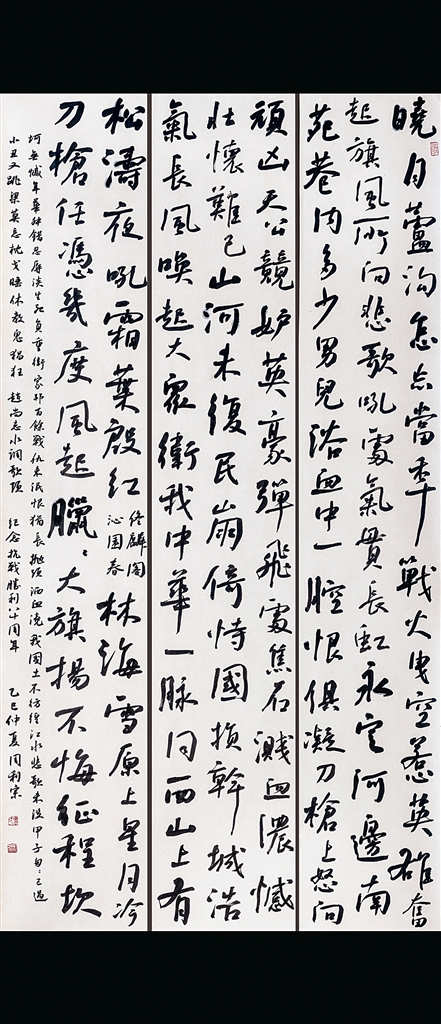 曉月蘆溝怎忘當年戰火曳空惹英雄奮
起旗風所向悲歌吼處氣貫長虹永定河邊南
苑巷内多少男兒浴血中一腔恨俱凝刀槍上怒向
頑凶天公競妒英豪彈飛處焦石濺血濃憾
壯懷難已山河未復民崩倚恃國損幹城浩
氣長風喚起大衆衛我中華一脉同西山上有
松濤夜吼霜葉殷紅 佟麟閣 沁園春 林海雪原上星月冷
刀槍任憑幾度風起臘々大旗揚不悔征程坎
坷無憾年華錯忍磨淡生死負重衛家邦百餘戰仇未泯恨猶長拋頭洒血澆我國土不彷徨江水悲歌未沒甲子匆々已過
小丑又跳梁莫忘枕戈睡休教鬼猖狂 趙尚志水調歌頭 紀念抗戰勝利八十周年 乙巳仲夏周利宗